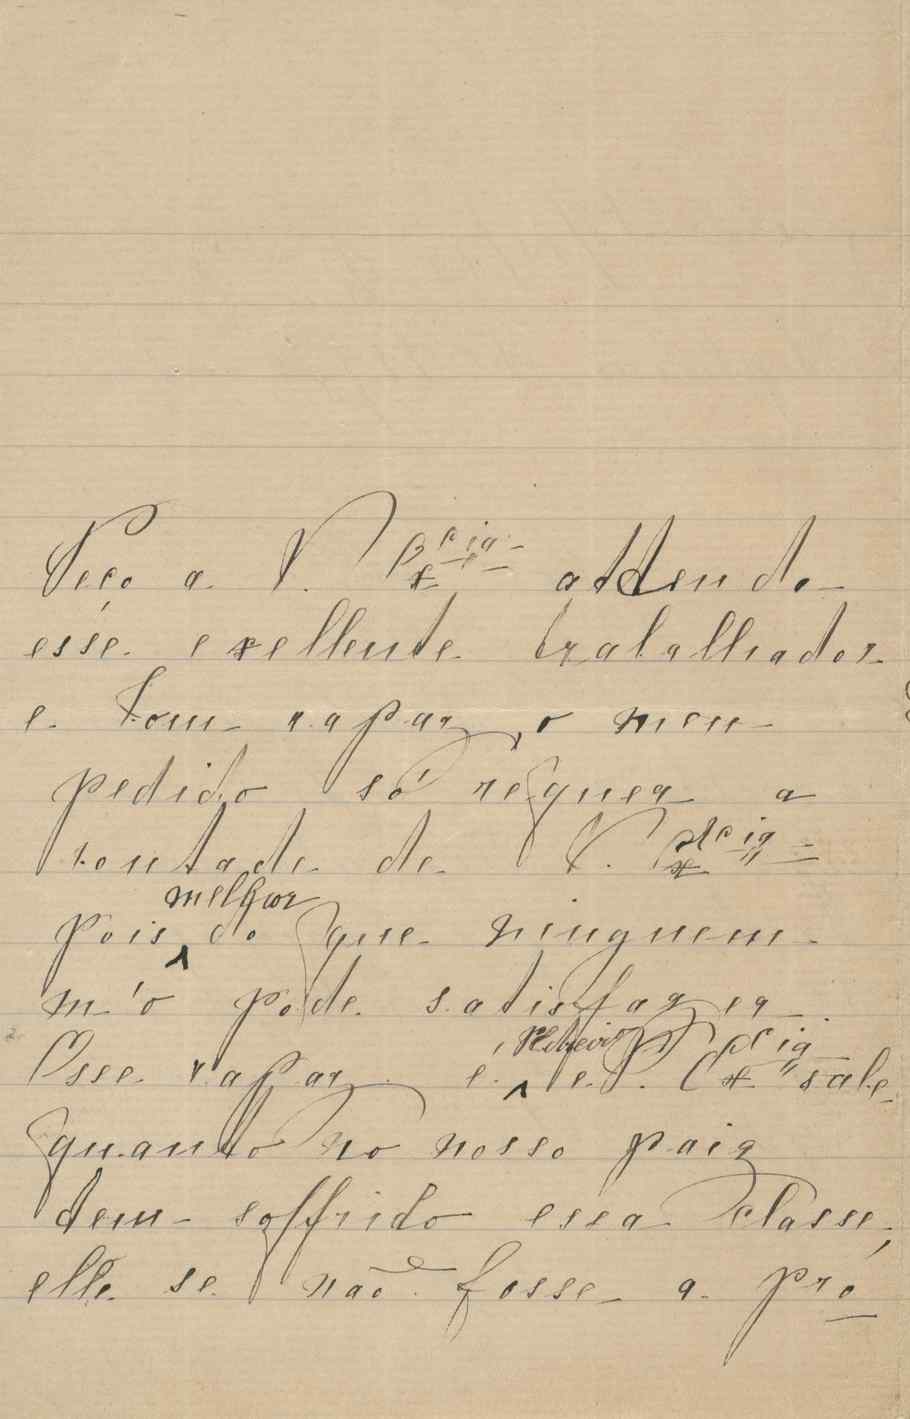 Peço a V. Excia attenda
esse exellente trabalhador
e bom rapaz, o meu
pedido só requer a
vontade de V. Excia
pois melhor do que ninguem
m'o póde satisfazer.
Esse rapaz é e V. Excia sabe
quanto no nosso paiz
tem soffrido essa classe,
elle se não fosse a pro